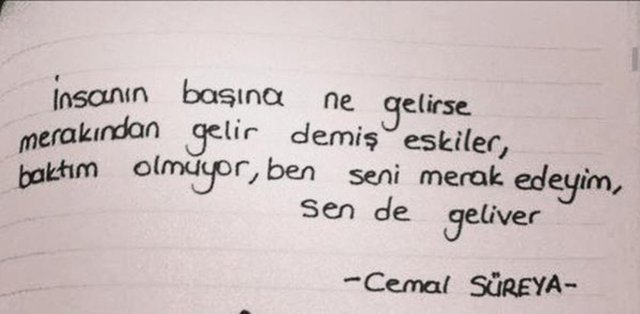 İnsanın başına ne gelirse
merakından gelir demiş eskiler,
baktım olmuyor, ben seni merak edeyim,
sen de geliver
-Cemal SÜREYA-